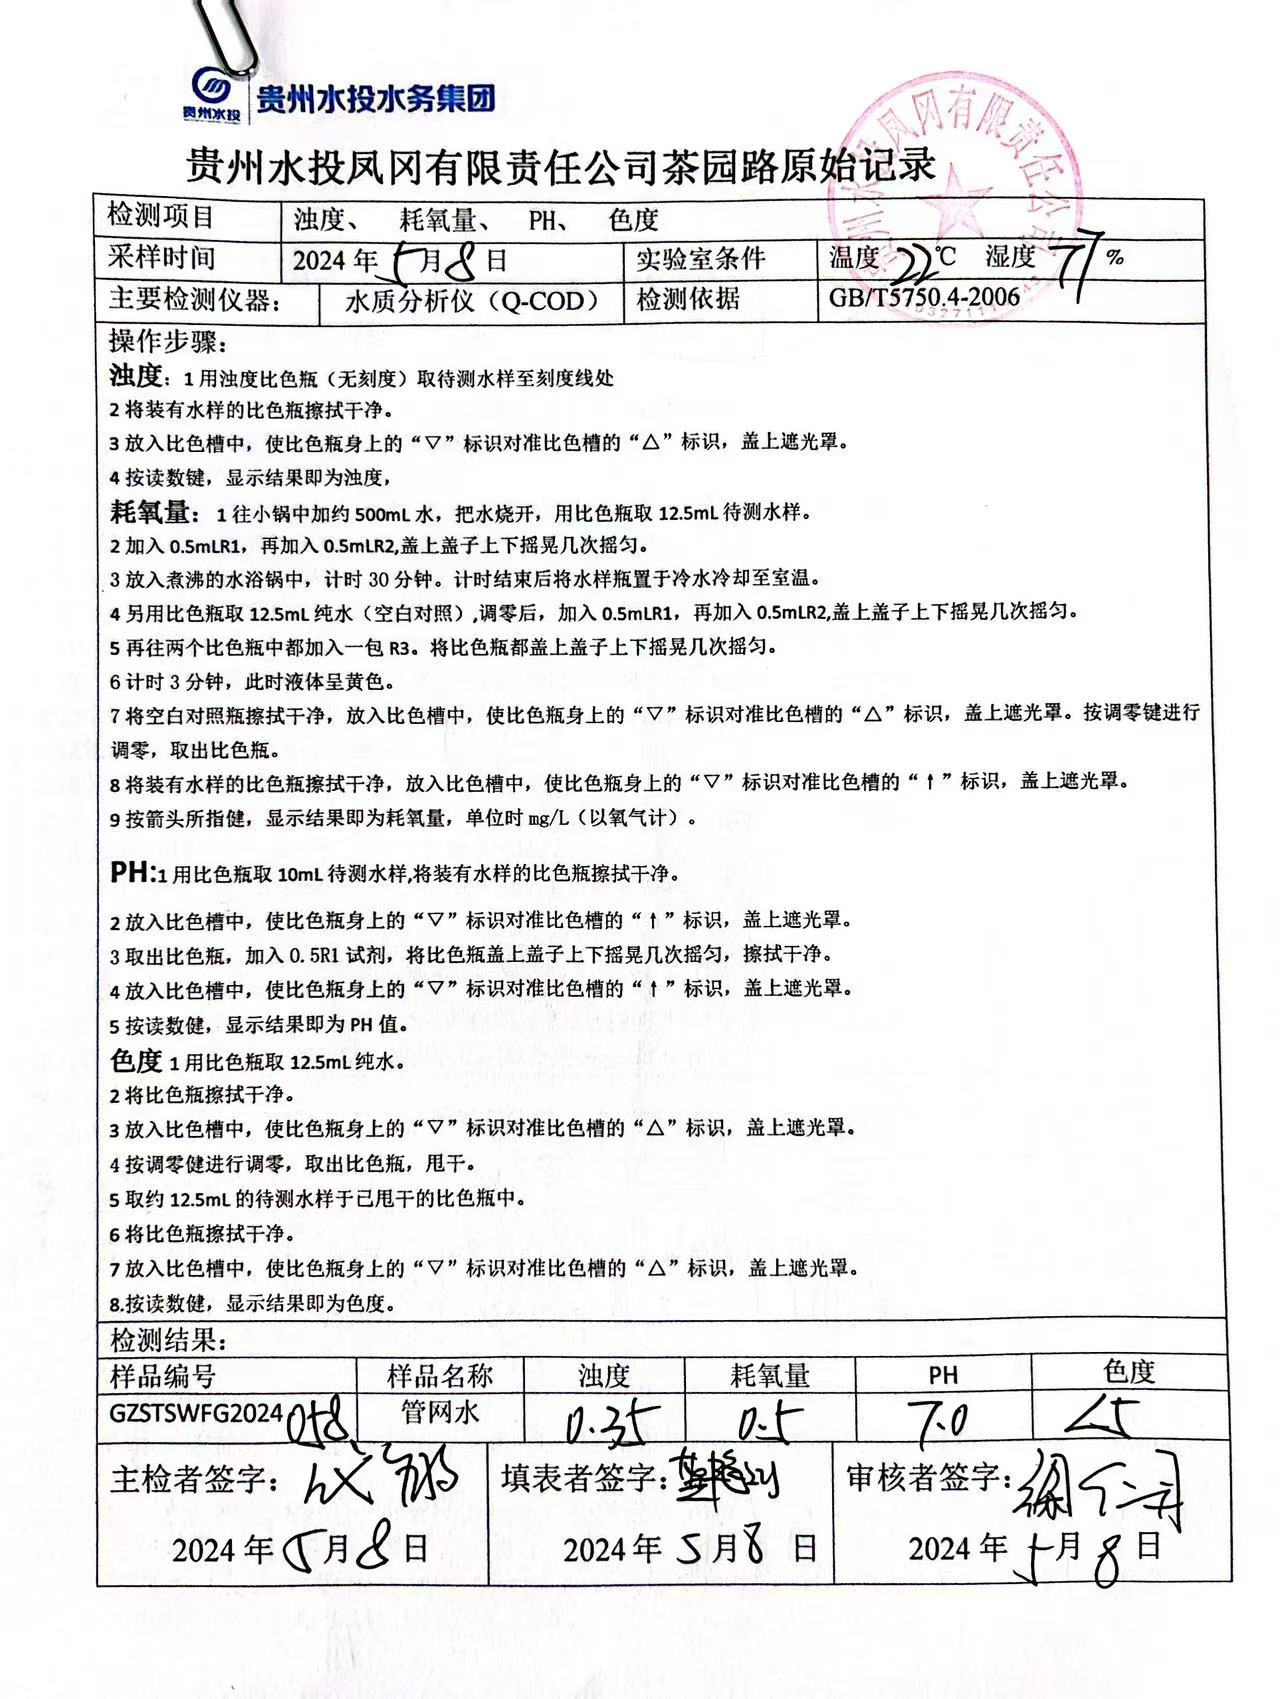 贵州水投
贵州水投水务集团
贵州水投凤冈有限责任公司茶园路原始记录
检测项目 浊度、 耗氧量、 PH、 色度
采样时间 2024 年 5 月 8 日 实验室条件 温度 22 ℃ 湿度 77 %
主要检测仪器： 水质分析仪（Q-COD） 检测依据 GB/T5750.4-2006
操作步骤：
浊度：1 用浊度比色瓶（无刻度）取待测水样至刻度线处
2 将装有水样的比色瓶擦拭干净。
3 放入比色槽中，使比色瓶身上的“▽”标识对准比色槽的“△”标识，盖上遮光罩。
4 按读数键，显示结果即为浊度，
耗氧量：1 往小锅中加约 500mL 水，把水烧开，用比色瓶取 12.5mL 待测水样。
2 加入 0.5mLR1，再加入 0.5mLR2,盖上盖子上下摇晃几次摇匀。
3 放入煮沸的水浴锅中，计时 30 分钟。计时结束后将水样瓶置于冷水冷却至室温。
4 另用比色瓶取 12.5mL 纯水（空白对照）,调零后，加入 0.5mLR1，再加入 0.5mLR2,盖上盖子上下摇晃几次摇匀。
5 再往两个比色瓶中都加入一包 R3。将比色瓶都盖上盖子上下摇晃几次摇匀。
6 计时 3 分钟，此时液体呈黄色。
7 将空白对照瓶擦拭干净，放入比色槽中，使比色瓶身上的“▽”标识对准比色槽的“△”标识，盖上遮光罩。按调零键进行
调零，取出比色瓶。
8 将装有水样的比色瓶擦拭干净，放入比色槽中，使比色瓶身上的“▽”标识对准比色槽的“↑”标识，盖上遮光罩。
9 按箭头所指健，显示结果即为耗氧量，单位时 mg/L（以氧气计）。
PH:1 用比色瓶取 10mL 待测水样,将装有水样的比色瓶擦拭干净。
2 放入比色槽中，使比色瓶身上的“▽”标识对准比色槽的“↑”标识，盖上遮光罩。
3 取出比色瓶，加入 0.5R1 试剂，将比色瓶盖上盖子上下摇晃几次摇匀，擦拭干净。
4 放入比色槽中，使比色瓶身上的“▽”标识对准比色槽的“↑”标识，盖上遮光罩。
5 按读数健，显示结果即为 PH 值。
色度 1 用比色瓶取 12.5mL 纯水。
2 将比色瓶擦拭干净。
3 放入比色槽中，使比色瓶身上的“▽”标识对准比色槽的“△”标识，盖上遮光罩。
4 按调零健进行调零，取出比色瓶，甩干。
5 取约 12.5mL 的待测水样于已甩干的比色瓶中。
6 将比色瓶擦拭干净。
7 放入比色槽中，使比色瓶身上的“▽”标识对准比色槽的“△”标识，盖上遮光罩。
8.按读数健，显示结果即为色度。
检测结果：
样品编号 样品名称 浊度 耗氧量 PH 色度
GZSTSWFG2024058 管网水 0.35 0.5 7.0 <5
主检者签字： 填表者签字： 审核者签字：
2024 年 5 月 8 日 2024 年 5 月 8 日 2024 年 5 月 8 日